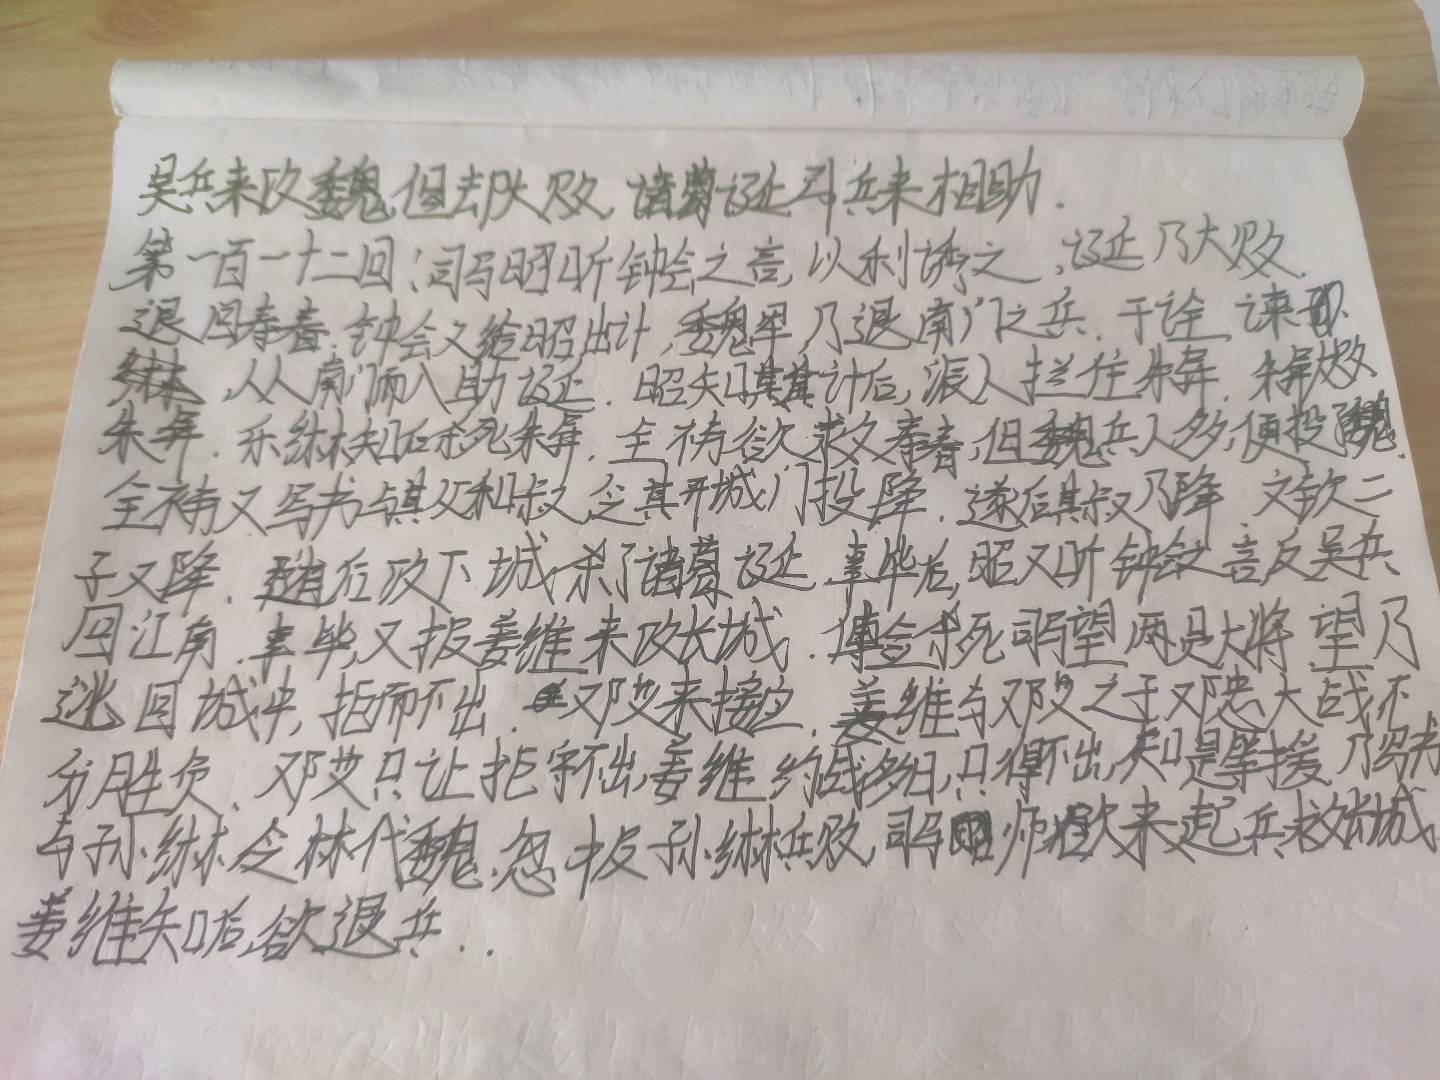 吴兵来攻魏,但去失败,诸葛诞引兵来相助.
第一百一十二回:司马昭听钟会之言,以利诱之,诞乃大败.
退回寿春.钟会又给昭出计,魏军乃退南门之兵.于诠谏
綝,从南门而入助诞.昭知其计后,派人拦住朱异.朱异败
朱异.綝知后杀死朱异.全祎欲救寿春,但魏兵人多,便投了魏.
全祎又写书与其父和叔,令其开城门投降.遂后其叔乃降.文钦二
子又降.随后攻下城,杀了诸葛诞.事毕后,昭又听钟会之言反吴兵
回江南.事毕,又报姜维来攻长城.傅佥杀死司马望两员大将,望乃
逃回城中,拒而不出.邓艾来接应.姜维与邓艾之子邓忠大战不
分胜负.邓艾只让拒守不出,姜维约战多日,只得不出,知是等援,乃写书
与孙綝令林代魏.忽报孙綝兵败,司马师欲来起兵救长城.
姜维知后,欲退兵..